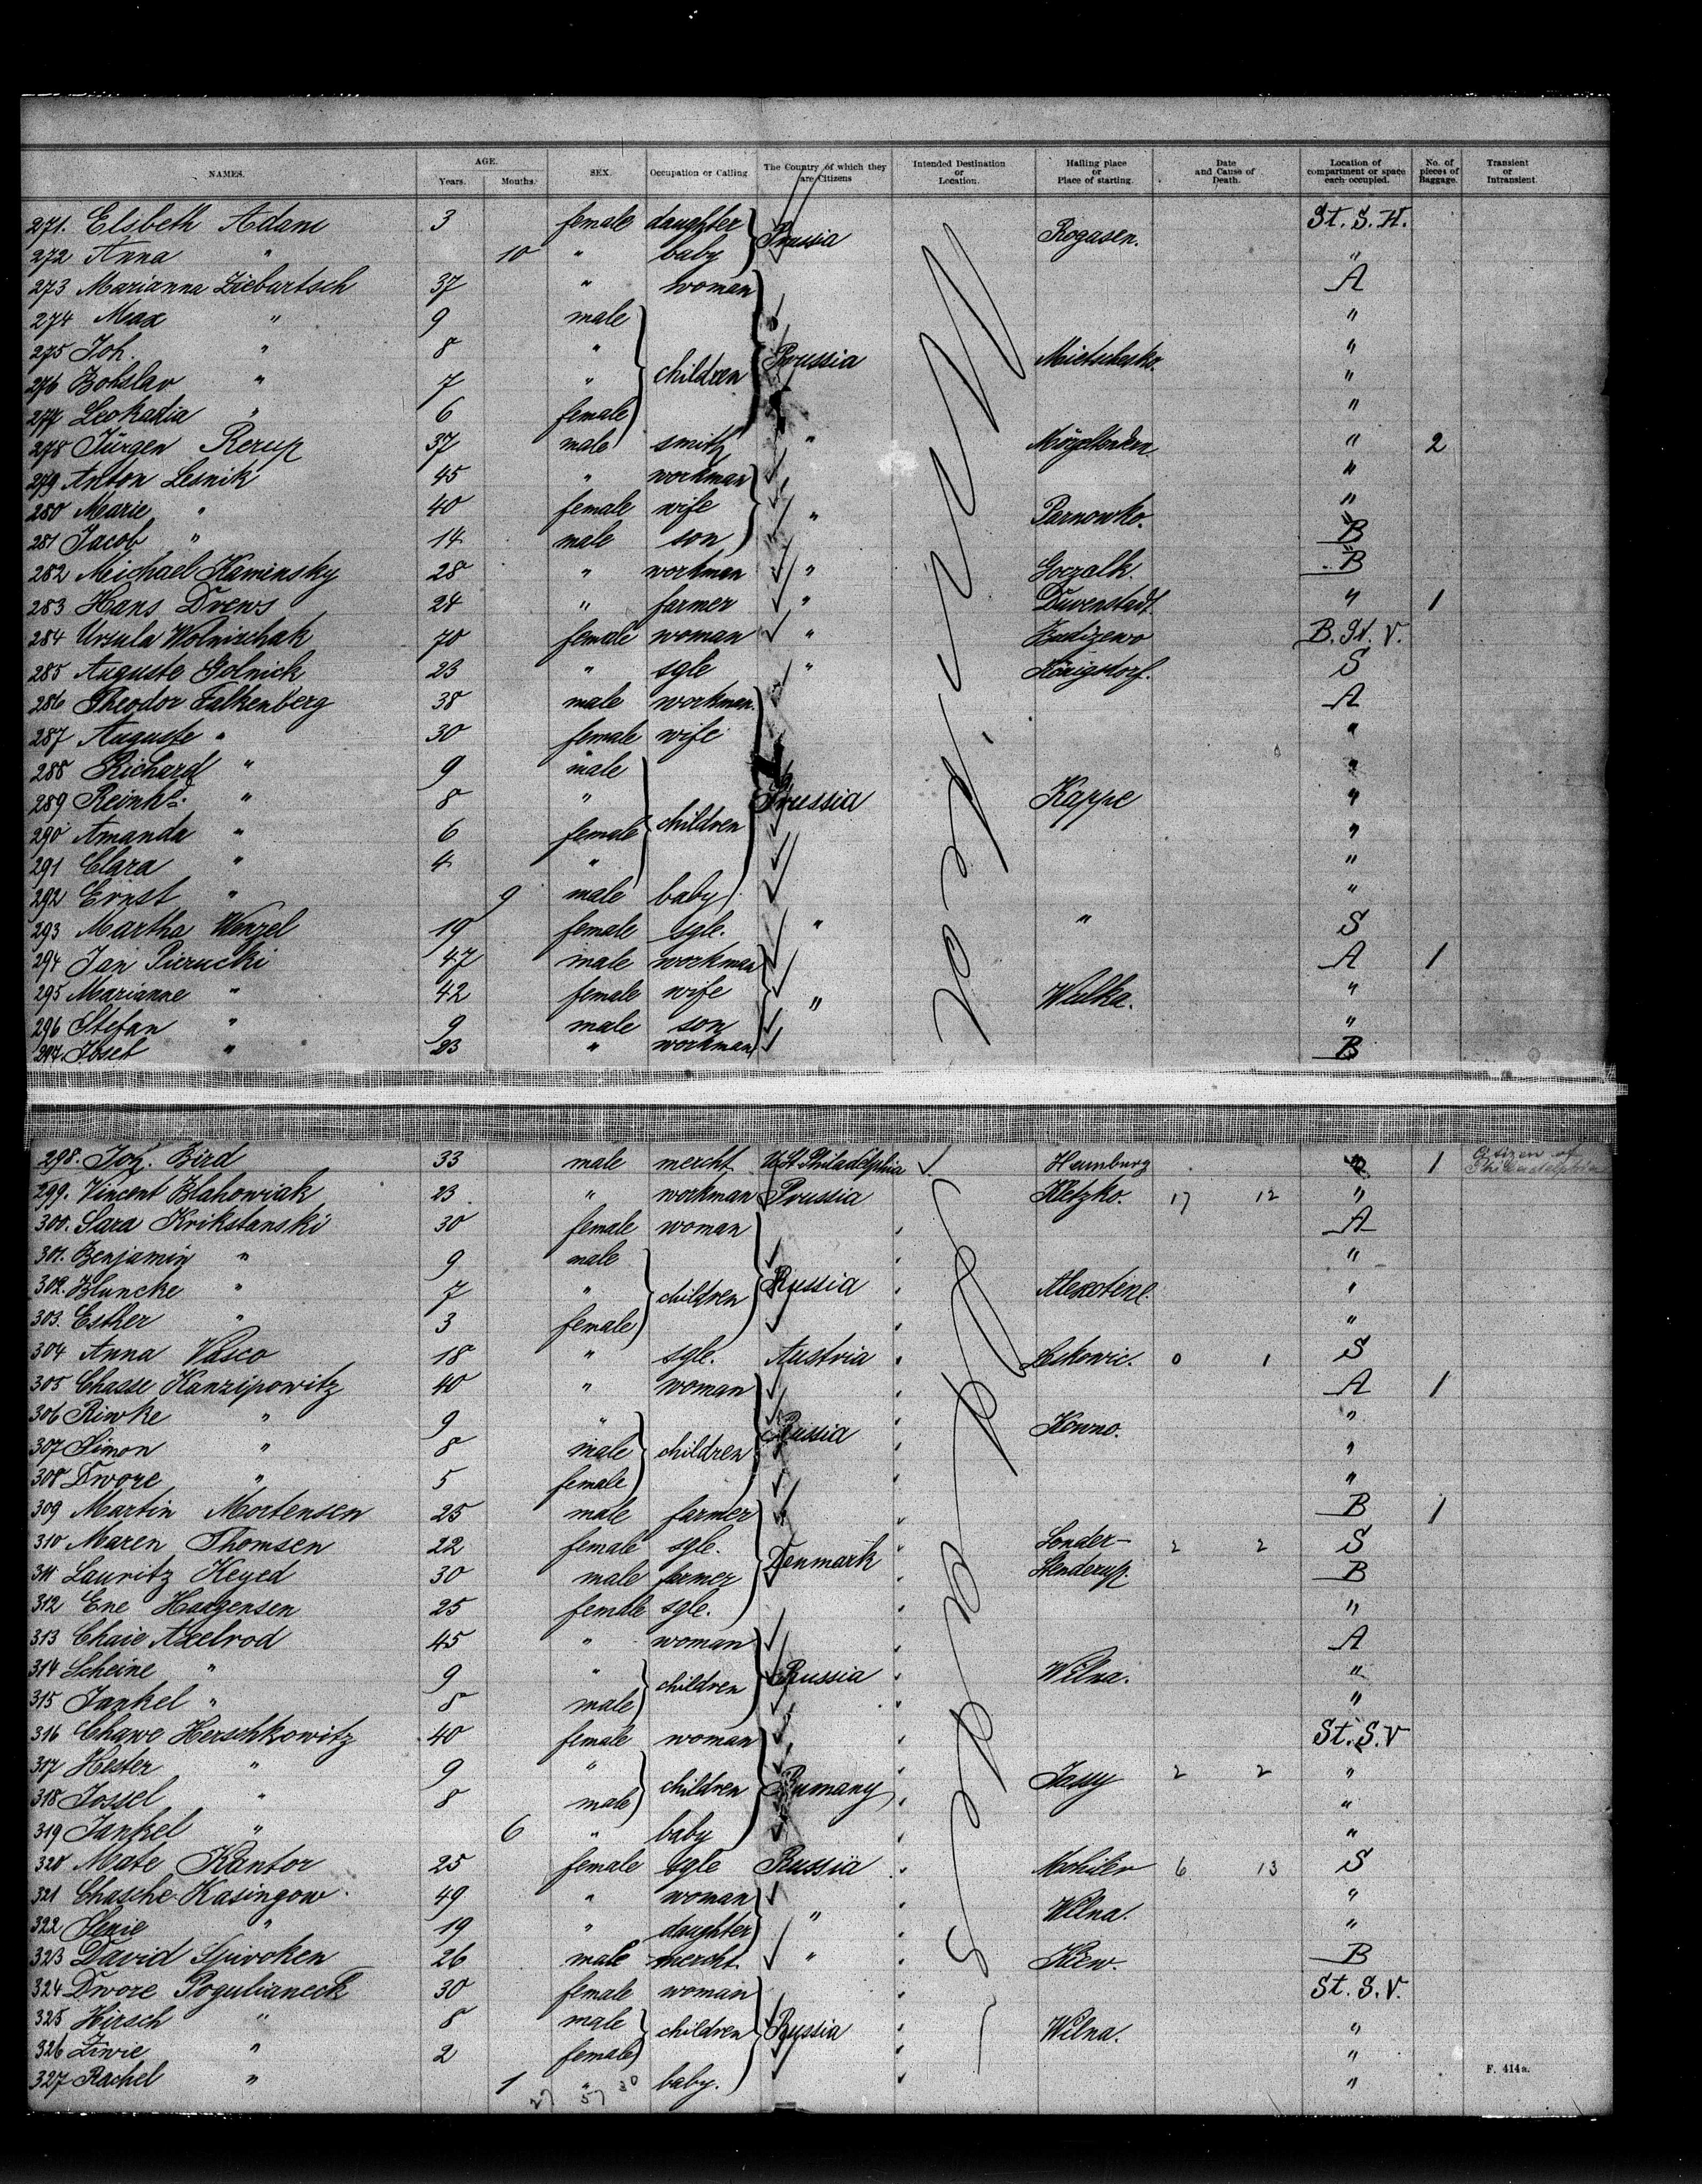 NAMES. AGE. Years. Months. SEX. Occupation or Calling. The Country of which they are Citizens Intended Destination or Location. Hailing place or Place of starting. Date and Cause of Death. Location of compartment or space each occupied. No. of pieces of Baggage. Transient or Intransient.
271. Elsbeth Adam 3 female daughter Prussia Rogasen. St. S. H.
272 Anna " 10 " baby "
273 Marianna Ziebartsch 37 " woman A
274 Max " 9 male "
275 Joh. " 8 " children Prussia "
276 Bolslav " 7 " "
277 Leokadia " 6 female "
278 Jürgen Rerup 37 male smith " " 2
279 Anton Lesnik 45 " workman "
280 Marie " 40 female wife " Parnowko. "
281 Jacob " 14 male son B
282 Michael Kaminsky 28 " workman " Goczalk. B
283 Hans Drews 24 " farmer " Duvenstadt. " 1
284 Ursula Wolnischak 70 female woman " B. St. V.
285 Auguste Golnick 23 " sgle " Königsdorf. S
286 Theodor Falkenberg 38 male workman. A
287 Auguste " 30 female wife "
288 Richard " 9 male "
289 Reinhd. " 8 " children Prussia Kappe "
290 Amanda " 6 female "
291 Clara " 4 " "
292 Ernst " 9 male baby "
293 Martha Wenzel 19 female sgle. " " S
294 Jan Pierucki 47 male workman A 1
295 Marianne " 42 female wife " Wulka. "
296 Stefan " 9 male son "
297. Josef " 23 " workman B
298. Joh. Bird 33 male mercht. U. St. Philadelphia Hamburg " 1 Citizen of Philadelphia
299. Vincent Blahowiak 23 " workman Prussia Kletzko. 17 12 "
300. Sara Krikstanski 30 female woman A
301. Benjamin " 9 male "
302. Bluncke " 7 " children Russia Alexotene. "
303. Esther " 3 female "
304 Anna Vasco 18 " sgle. Austria Leskowic. 0 1 S
305 Chasse Kanzipowitz 40 " woman A 1
306 Riwke " 9 " Russia Kowno. "
307 Simon " 8 male children "
308 Dwore " 5 female "
309 Martin Mortensen 25 male farmer B 1
310 Maren Thomsen 22 female sgle. Denmark Sonder- 2 2 S
311 Lauritz Keyed 30 male farmer Stenderup. B
312 Ene Haagensen 25 female sgle. "
313 Chaie Axelrod 45 " woman A
314 Scheine " 9 " children Russia Wilna. "
315 Jankel " 8 male "
316 Chawe Herschkowitz 40 female woman St. S. V
317 Hester " 9 " children Rumany Jassy 2 2 "
318 Jossel " 8 male "
319 Jankel " 6 " baby "
320 Mate Kantor 25 female sgle Russia Mohilev 6 13 S
321 Chasche Kasingow 49 " woman " Wilna. "
322 " 19 " daughter "
323 David Spivoken 26 male mercht. " Kiew. B
324 Dwore Pogulianeck 30 female woman St. S. V.
325 Hirsch " 8 male children Russia Wilna. "
326 Ziwie " 2 female "
327 Rachel " 1 " baby. "
27 57 30
F. 414a.